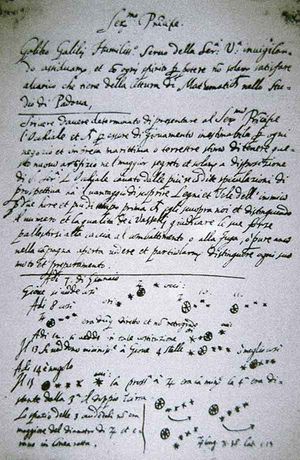 Ser.mo Principe.
Galileo Galilej Humiliss.o Servo della Ser.a V.a invigilan-
do assiduam.te, et co ogni spirito p potere no solam.te satisfare
al carico che tiene della lettura di Matematich. nello Stu-
dio di Padova,
Scrivere d'avere determinato di presentare al Ser.mo Principe
l'Ochiale et p essere di giovamento inestimabile p ogni
negozio et impresa marittima o terrestre stima di tenere que-
sto nuovo artifizio nel maggior segreto et solam.te a disposizione
di S. Ser.tà L'Ochiale cavato dalle più recondite speculazioni di
prospettiva ha il vantaggio di scoprire Legni et Vele dell'inimico
p due hore et più di tempo prima ch' egli scuopra noi et distinguendo
il numero et la qualità de i Vasselli giudicare le sue forze
pallestirsi alla caccia al combattimento o alla fuga, o pure anco
nella capagna aperta vedere et particolarm.te distinguere ogni suo
moto et preparamento.
Adi 7. di Gennaio
Giove si vedde così
Adi 8 così
era diretto et no retrogrado
Adi 12. si vedde in tale costituzione
Il 13 si veddono vicinis.e a Giove 4 stelle meglio così
Adi 14 è nugolo
Il 15
la 4a era di-
stante dalla 3a il doppio
Lo spazio delle 3 occidentali no era
maggiore del diametro di 4 et e-
rano in linea retta.